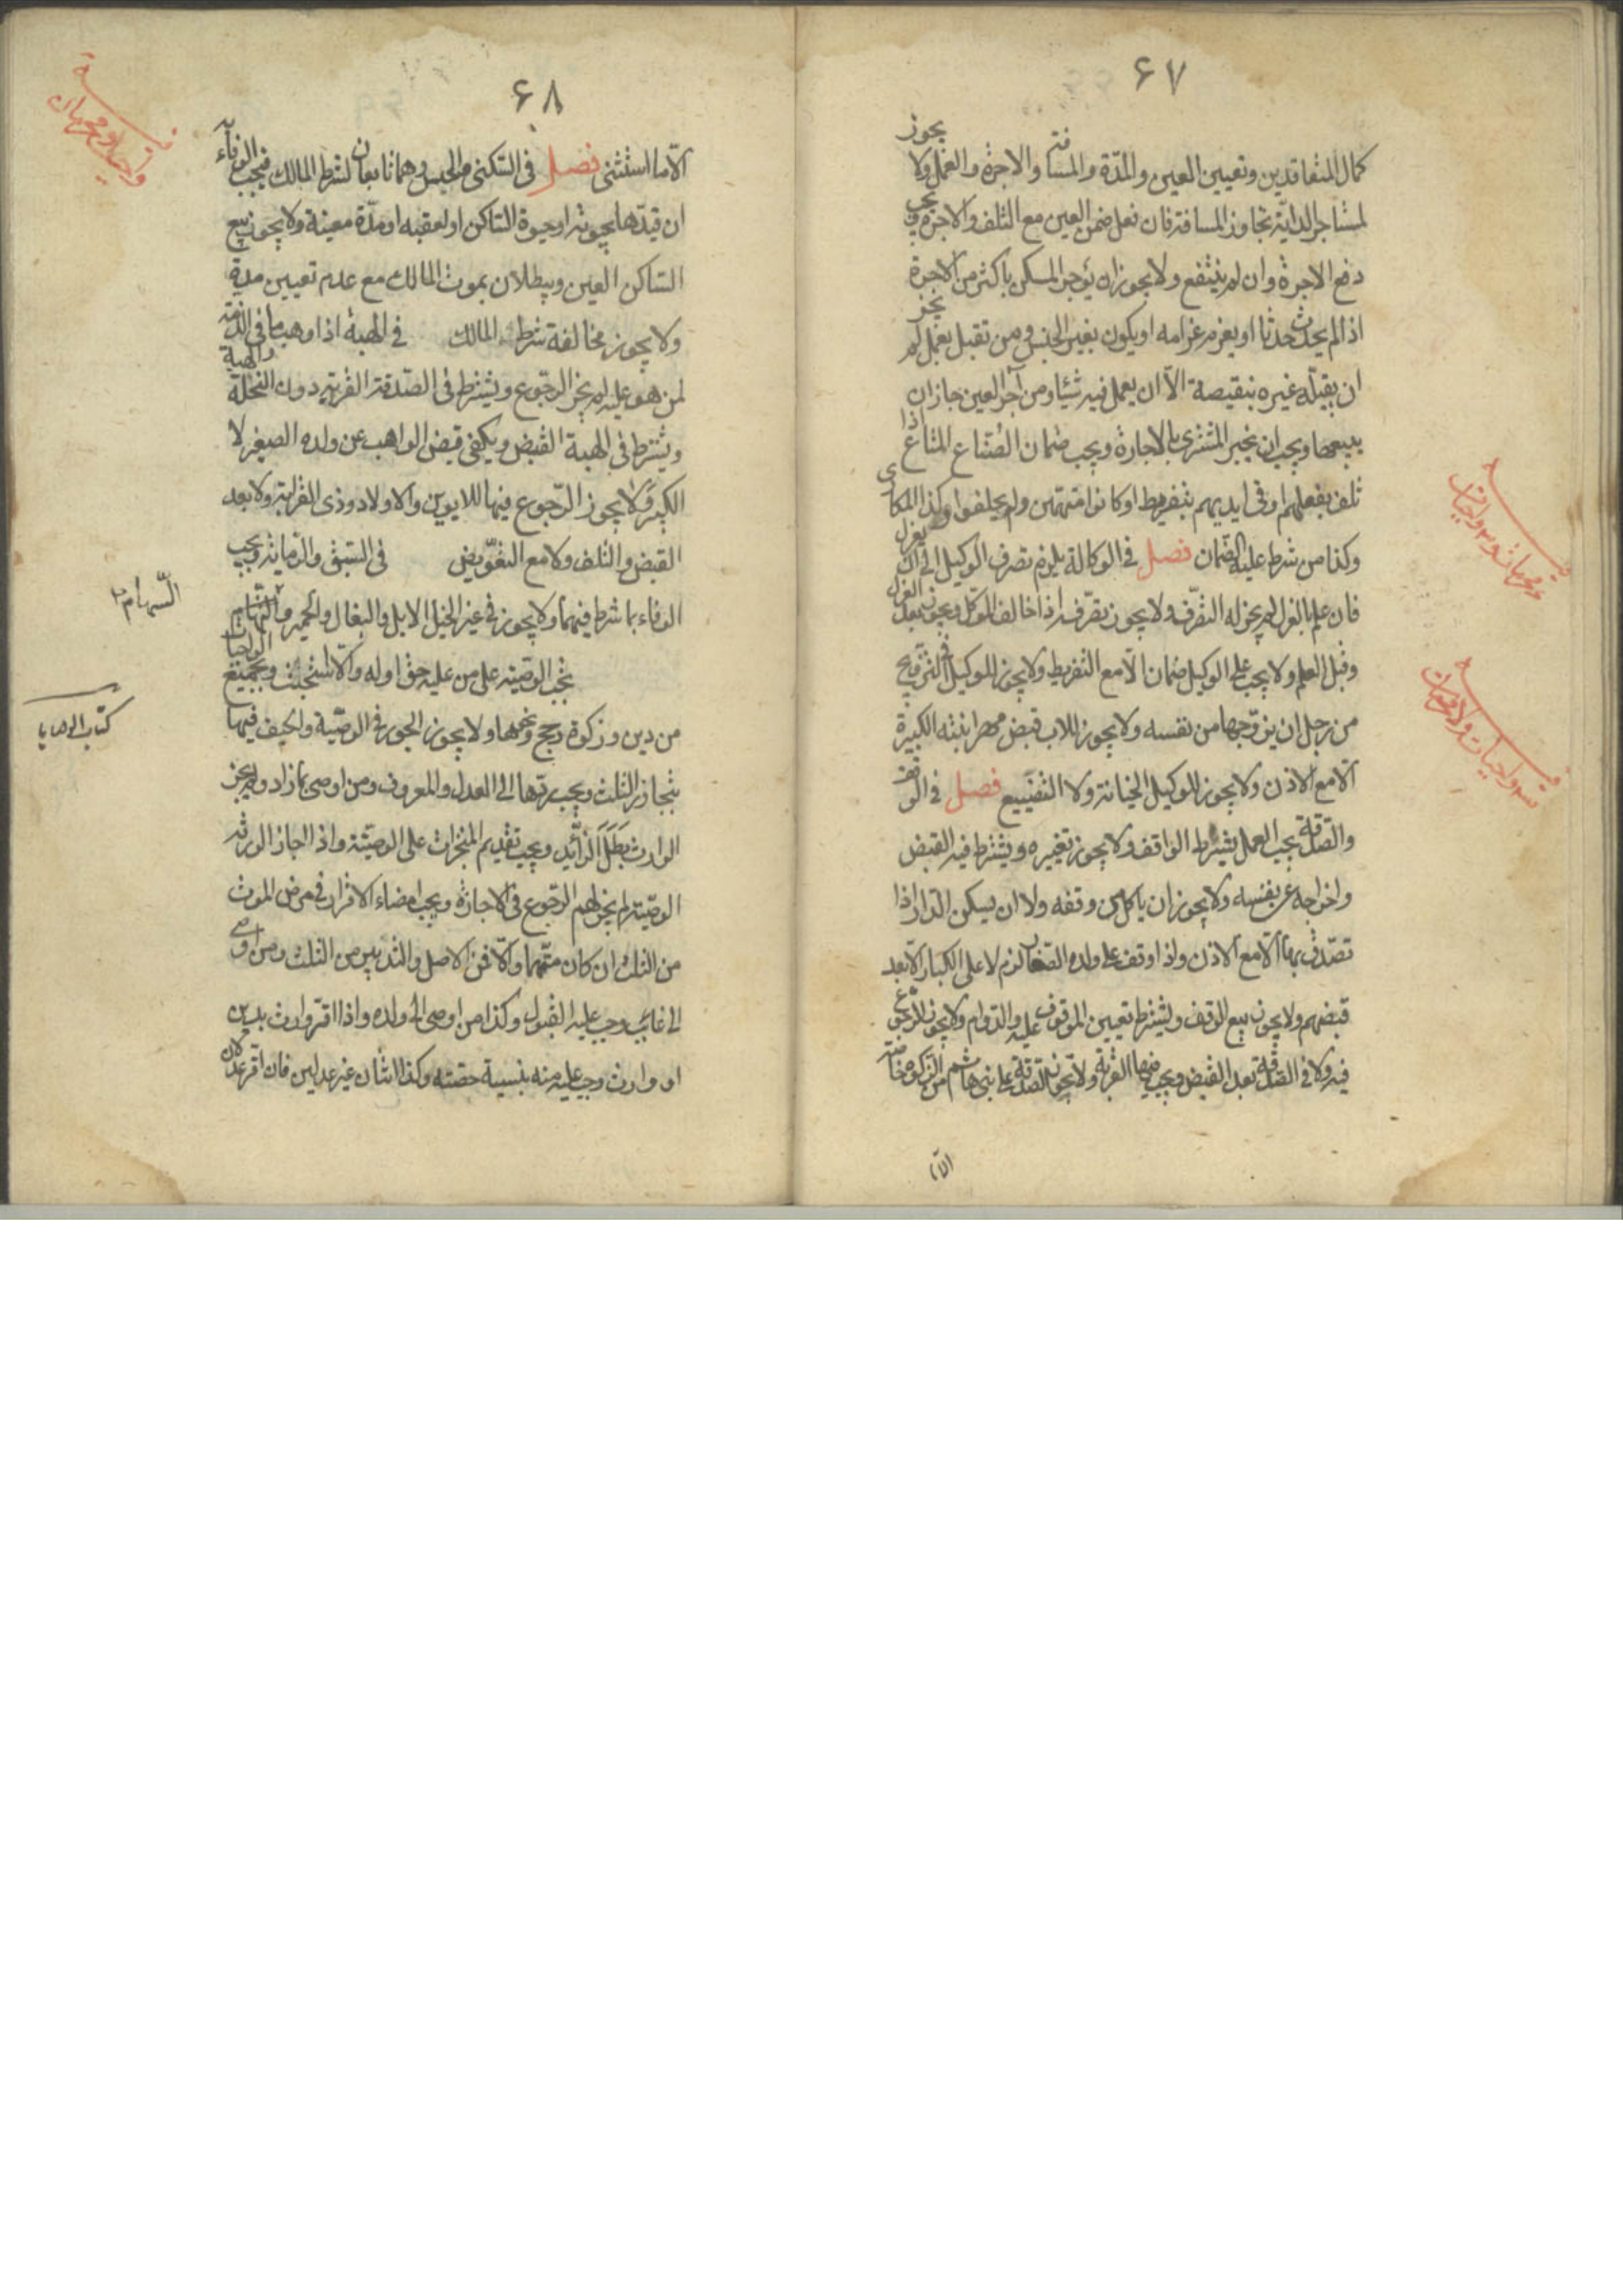 ۶۷
كمال المتعاقدين وتعيين العين والمدّة والمسافة والاجرة والعمل ولا يجوز
لمستاجر الدابّة تجاوز المسافة فان فعل ضمن العين مع التلف والاجرة ويجب
دفع الاجرة وان لم ينتفع ولا يجوز ان يؤجر المسكن باكثر من الاجرة
اذا لم يحدث حدثا او يغرم غرامه او يكون بغير الجنس ومن تقبل بعمل لم يجز
ان يقبّله غيره بنقيصة الّا ان يعمل فيه شيئا ومن آجر العين جاز ان
يبيعها ويجب ان يخبر المشترى بالاجارة ويجب ضمان الصّناع المتاع اذا
تلف بفعلهم او فى ايديهم بتفريط او كانوا متهمين ولم يحلفوا وكذا المكارى
وكذا من شرط عليه الضّمان فصل فى الوكالة يلزم تصرف الوكيل الى ان يعزل
فان علم بالعزل لم يجز له التصّرف ولا يجوز تصّرفه اذا خالف الموكّل ويجوز بعد العزل
وقبل العلم ولا يجب على الوكيل ضمان الّا مع التفريط ولا يجوز للوكيل فى التزويج
من رجل ان يزوّجها من نفسه ولا يجوز للاب قبض مهر ابنته الكبيرة
الّا مع الاذن ولا يجوز للوكيل الخيانة ولا التضييع فصل فى الوقف
والصّدقة يجب العمل بشرط الواقف ولا يجوز تغييره ويشترط فيه القبض
واخراجه عن نفسه ولا يجوز ان ياكل من وقفه ولا ان يسكن الدار اذا
تصّدق بها الّا مع الاذن واذا وقف على ولده الصّغار لزم لا على الكبار الّا بعد
قبضهم ولا يجوز بيع الوقف ويشترط تعيين الموقوف عليه والدّوام ولا يجوز الرّجوع
فيه ولا فى الصّدقة بعد القبض ويجب فيها القربة ولا تجوز الصّدقة على بنى هاشم من الزكوة خاصّة
الّا
۶۸
الّا ما استثنى فصل فى السّكنى والحبس وهما تابعان لشرط المالك فيجب الوفاء به
ان قيدّها بحيوته او حيوة السّاكن او لعقبه او مدّة معينة ولا يجوز بيع
السّاكن العين ويبطلان بموت المالك مع عدم تعيين مدة
ولا يجوز مخالفة شرط المالك فى الهبة اذا وهب ما فى الذّمة
لمن هو عليه لم يجز الرجوع ويشترط فى الصّدقة القربة دون النحلة والهبة
ويشترط فى الهبة القبض ويكفى قبض الواهب عن ولده الصغير لا
الكبير ولا يجوز الرّجوع فيها للابوين والاولاد وذى القرابة ولا بعد
القبض والتلف ولا مع التعّويض فى السّبق والرّماية ويجب
الوفاء بما شرط فيهما ولا يجوز فى غير الخيل الابل والبغال والحمير
تجب الوصّية على من عليه حق اوله والّا استحبّت وبجميع الواجبات
من دين وزكوة وحج ونحوها ولا يجوز الجور فى الوصّية والحيف فيها
بتجاوز الثلث ويجب ردّها الى العدل والمعروف ومن اوصى بما زاد ولم يجز
الوارث بَطَلَ الزائِد ويجب تقديم المنجزات على الوصيّة واذا اجاز الورثه
الوصّية لم يجز لهم الرّجوع فى الاجازة ويجب امضاء الاقرار فى مرض الموت
من الثلث ان كان متّهما والّا فمن الاصل والتدبير من الثلث ومن اوصى
الى غائب وجب عليه القبول وكذا من اوصى الى ولده واذا اقرّ وارث بدين
او وارث وجب عليه منه بنسبة حصّته وكذا اثنان غير عدلين فان اقر عدلان
السّهام
كتاب الوصايا